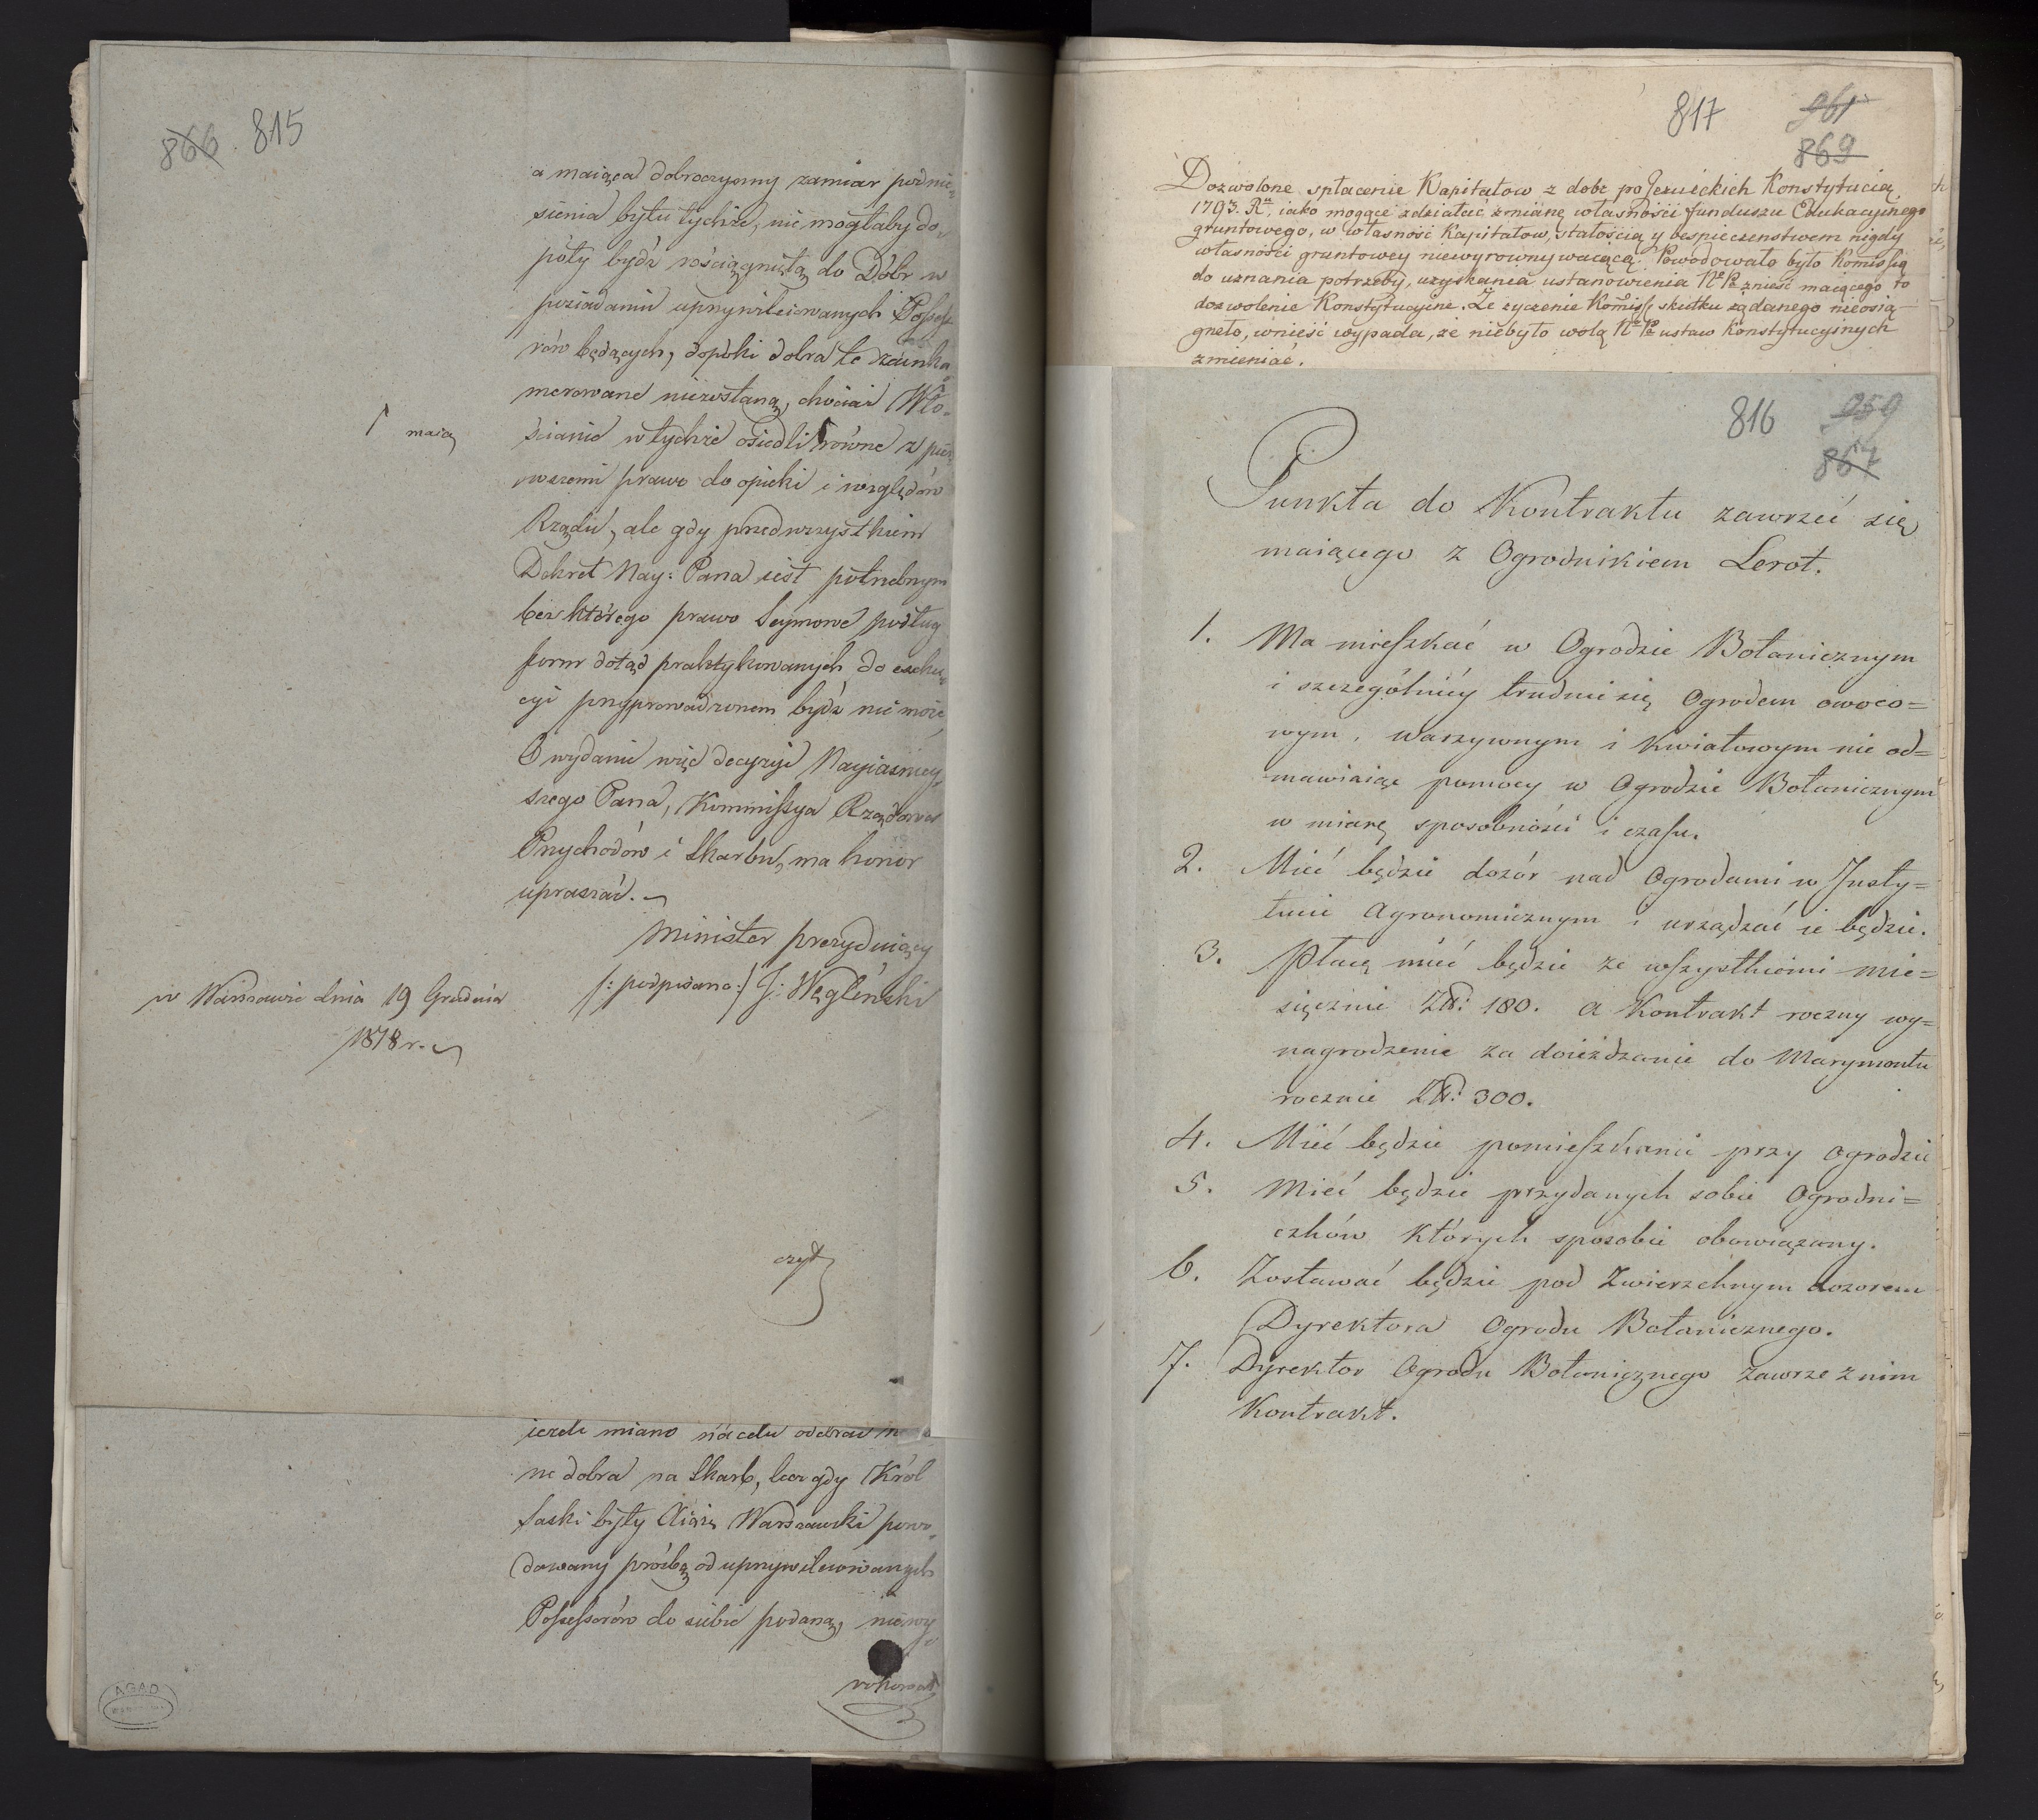 866. 815
a maiąca dobroczynny zamiar podnie-
sienia bytu tychże, nie mogłaby do-
póty bydź rościągniętą do Dóbr w
posiadaniu uprzywileiowanych Possesso-
rów będących, dopóki dobra te zainka-
merowane niezostaną, chociaż Wło-
ścianie w tychże osiedli ⌈ równe z pier-
⌈ maią
wszemi prawo do opieki i względów
Rządu, ale gdy przedwszystkiem
Dekret Nay: Pana iest potrzebnym
bez którego prawo Seymowe podług
form dotąd praktykowanych do exeku-
cyi przyprowadzonem bydź nie może,
O wydanie więc decyzyi Nayiaśniey-
szego Pana, Kommissya Rządowa
Przychodów i Skarbu, ma honor
upraszać.
Minister prezyduiący
/: podpisano :/ J: Węgleński
w Warszawie dnia 19 Grudnia
1818 r.
czyt
ieżeli miano na celu odebrać
ne dobra na Skarb, lecz gdy Król
Saski były Xiąże Warszawski powo-
dowany prośbą od uprzywileiowanych
Possessorów do siebie podaną, niewy-
rokował
AGAD
817 961
869
Dozwolone spłacenie Kapitałow z dobr po Jezuickich Konstytucią
1793. Ru, iako mogące zdziałać zmianę własności funduszu Edukacyinego
gruntowego, w własność Kapitałow, stałością y bespieczenstwem nigdy
własności gruntowey niewyrownywaiącą. Powodowało było Komissią
do uznania potrzeby, uzyskania ustanowienia NoPo znieść maiącego to
dozwolenie Konstytucyine. Ze życzenie Komiss skutku żądanego nieosią-
gneło, wnieść wypada, że niebyło wolą No Po ustaw Konstytucyinych
zmieniać.
816 959
867
Punkta do Kontraktu zawrzeć się
maiącego z Ogrodnikiem Lerot.
1. Ma mieszkać w Ogrodzie Botanicznym
i szczególniéy trudnić się Ogrodem owoco=
wym, warzywnym i kwiatowym nie od=
mawiaiąc pomocy w Ogrodzie Botanicznym
w miarę sposobności i czasu.
2. Mieć będzie dozór nad Ogrodami w Insty=
tucie Agronomicznym i urządzać ie będzie.
3. Płacę mieć będzie ze wszystkiemi mie=
sięcznie Złł: 180. a Kontrakt roczny wy=
nagrodzenie za doieżdzanie do Marymontu
rocznie Złł: 300.
4. Mieć będzie pomieszkanie przy Ogrodzie
5. Mieć będzie przydanych sobie Ogrodni=
czków których sposobić obowiązany.
6. Zostawać będzie pod Zwierzchnym dozorem
Dyrektora Ogrodu Botanicznego.
7. Dyrektor Ogrodu Botanicznego zawrze z nim
Kontrakt.